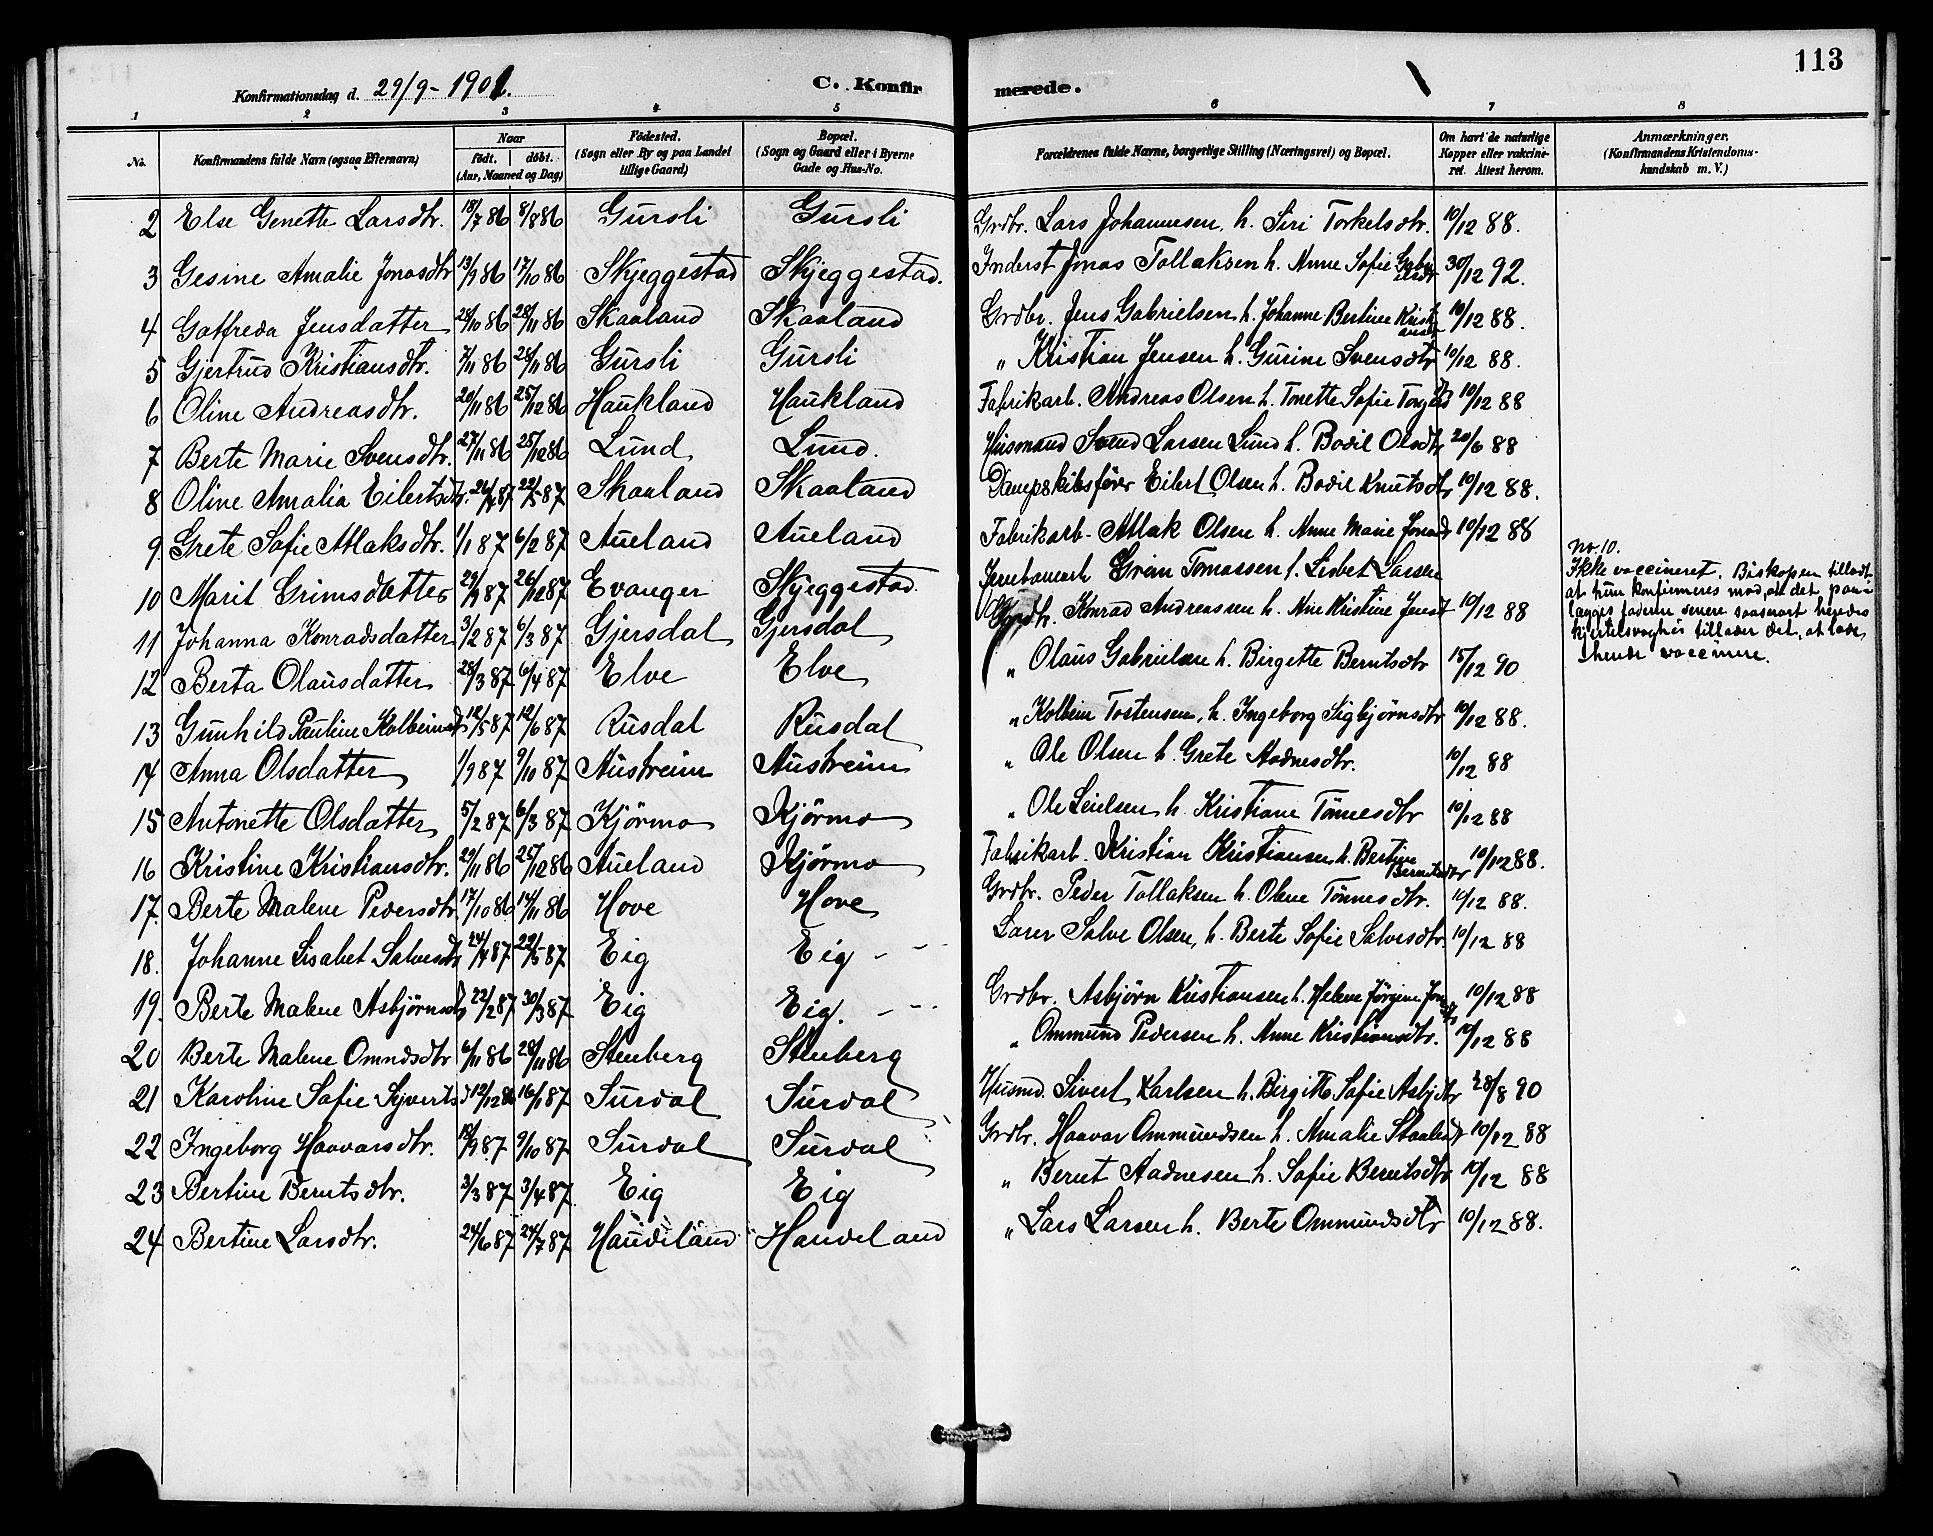 113
Konfirmationsdag d. 29/9 - 1901.
C. Konfirmerede.
1 2 3 4 5 6 7 8
No.
Konfirmandens fulde Navn (ogsaa Efternavn)
Naar
födt. döbt.
(Aar, Maaned og Dag)
Födested.
(Sogn eller By og paa Landet
tillige Gaard)
Bopæl.
(Sogn og Gaard eller i Byerne
Gade og Hus-No.
Forældrenes fulde Navne, borgerlige Stilling (Næringsvei) og Bopæl.
Om havt de naturlige
Kopper eller vakcine-
ret. Attest herom.
Anmærkninger.
(Konfirmandens Kristendoms-
kundskab m. V.)
2 Else Genette Larsdtr. 18/7 86 8/8 86 Gursli Gursli Grdbr. Lars Johannesen h. Siri Torkelsdtr. 10/12 88.
3 Gesine Amalie Jonasdtr 13/9 86 17/10 86 Skjeggestad Skjeggestad. Inderst Jonas Tollaksen h. Anne Sofie 30/12 92.
4 Gotfreda Jensdatter 28/10 86 28/11 86 Skaaland Skaaland Grdbr. Jens Gabrielsen h. Johanne Bertine 10/12 88.
5 Gjertrud Kristiansdtr. 7/11 86 28/11 86 Gursli Gursli " Kristian Jensen h. Gurine Svensdtr 10/12 88.
6 Oline Andreasdtr. 20/11 86 25/12 86 Haukland Haukland Fabrikarb. Andreas Olsen h. Tonette Sofie 10/12 88
7 Berte Marie Svensdtr. 27/11 86 25/12 86 Lund Lund. Husmand Svend Larsen Lund h. Bodil Olsdtr 20/6 88
8 Oline Amalia Eilertsdtr. 87 22/5 87 Skaaland Skaaland Dampskibsfører Eilert Olsen h. Bodil Knutsdtr 10/12 88.
9. Grete Sofie Atlaksdtr. 1/1 87 6/2 87 Aueland Aueland Fabrikarb. Atlak Olsen h. Anne Marie 10/12 88
10 Marit Grimsdatter 87 26/12 87 Evanger Skjeggestad. Jernbanearb Grim Tomassen h. Lisbet Larsen
no. 10.
Ikke vaccineret. Biskopen tilladt
at hun konfirmeres mod, at det paa-
lægges faderen senere saasnart hendes
kjertelsvaghed tillader det, at lade
hende vaccinere.
11 Johanna Konradsdatter 3/2 87 6/3 87 Gjersdal Gjersdal Konrad Andreassen h. Ane Kristine 10/12 88
12 Berta Olausdatter 28/3 87 6/4 87 Elve Elve " Olaus Gabrielsen h. Birgette Berntsdtr 15/12 90
13 Gunhild Pauline Kolbeinsdtr 12/5 87 12/6 87 Rusdal Rusdal " Kolbein Tostensen, h. Ingeborg Sigbjørnsdtr 10/12 88.
14 Anna Olsdatter 1/9 87 9/10 87 Austreim Austreim " Ole Olsen h. Grete Aadnesdtr. 10/12 88
15 Antonette Olsdatter 5/2 87 6/3 87 Kjörmo Kjörmo " Ole h. Kristiane Tönnesdtr 10/12 88
16 Kristine Kristiansdtr. 29/11 86 25/12 86 Aueland Kjörmo Fabrikarb. Kristian Kristiansen h. Bertine Berntsdtr 10/12 88.
17. Berte Malene Pedersdtr. 17/10 86 14/11 86 Hove Hove Grdbr. Peder Tollaksen h. Olene Tönnesdtr. 10/12 88.
18. Johanne Lisabet Salvesdtr 24/4 87 22/5 87 Eig Eig Lærer Salve Olsen, h. Berte Sofie Salvesdtr. 10/12 88
19. Berte Malene Asbjörnsdtr 22/2 87 30/3 87 Eig Eig. Grdbr. Asbjörn Kristiansen h. Helene Jörgine 10/12 88
20 Berte Malene Omndsdtr 6/11 86 28/11 86 Stenberg Stenberg " Ommund Pedersen h. Anne Kristiansdtr. 10/12 88
21 Karoline Sofie 12/12 86 16/1 87 Surdal Surdal Husmd. Sivert Karlsen h. Birgitte Sofie Asbjdtr 28/8 90
22 Ingeborg Haavarsdtr. 87 9/10 87 Surdal Surdal Grdbr. Haavar Ommundsen h. Amalie 10/12 88
23 Bertine Berntsdtr. 3/3 87 3/4 87 Eig Eig " Bernt Aadnesen h. Sofie Berntsdtr 10/12 88
24 Bertine Larsdtr. 24/6 87 24/7 87 Haudeland Haudeland " Lars Larsen h. Berte Ommundsdtr 10/12 88.